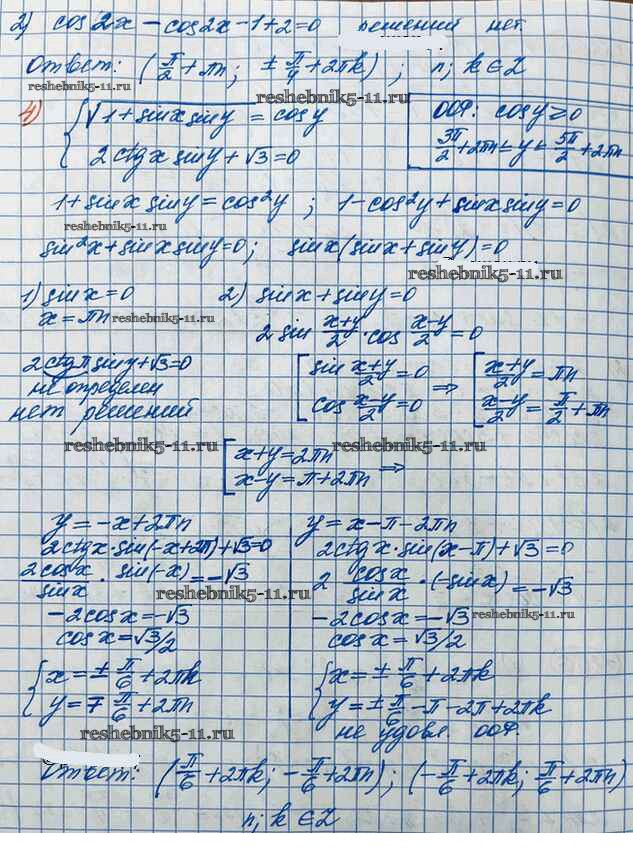 2) cos2x - cos2x - 1 + 2 = 0 решений нет.
Ответ: (π/2 + πn; ± π/4 + 2πk); n; k ∈ Z
4) { √1 + sinx siny = cosy
2ctgx siny + √3 = 0
ООФ: cosy ≥ 0
3π/2 + 2πn ≤ y ≤ 5π/2 + 2πn
1 + sinx siny = cos²y ; 1 - cos²y + sinx siny = 0
reshebnik5-11.ru
sin²x + sinx siny = 0; sinx(sinx + siny) = 0
reshebnik5-11.ru
1) sinx = 0 2) sinx + siny = 0
x = πn reshebnik5-11.ru
2 sin (x+y)/2 · cos (x-y)/2 = 0
2ctgπ siny + √3 = 0
не определен
нет решений
[ sin (x+y)/2 = 0
cos (x-y)/2 = 0 ⇒ [ (x+y)/2 = πn
(x-y)/2 = π/2 + πn
reshebnik5-11.ru reshebnik5-11.ru
[ x+y = 2πn
x-y = π + 2πn ⇒
y = -x + 2πn
2ctgx · sin(-x + 2π) + √3 = 0
2cosx/sinx · sin(-x) = -√3
reshebnik5-11.ru
-2cosx = -√3
cosx = √3/2
{ x = ± π/6 + 2πk
y = ∓ π/6 + 2πn
reshebnik5-11.ru
y = x - π - 2πn
2ctgx · sin(x - π) + √3 = 0
2 cosx/sinx · (-sinx) = -√3
-2cosx = -√3 reshebnik5-11.ru
cosx = √3/2
{ x = ± π/6 + 2πk
y = ± π/6 - π - 2π + 2πk
не удовл. ООФ.
Ответ: (π/6 + 2πk; -π/6 + 2πn); (-π/6 + 2πk; π/6 + 2πn)
n; k ∈ Z